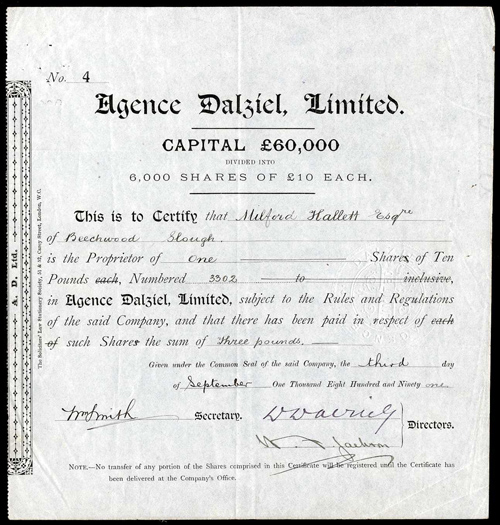 No. 4
Agence Dalziel, Limited.
CAPITAL £60,000
DIVIDED INTO
6,000 SHARES OF £10 EACH.
This is to Certify that Milford Hallett Esqre
of Beechwood Slough.
is the Proprietor of One Shares of Ten
Pounds each, Numbered 3302 to inclusive,
in Agence Dalziel, Limited, subject to the Rules and Regulations
of the said Company, and that there has been paid in respect of each
of such Shares the sum of Three pounds.
Given under the Common Seal of the said Company, the third day
of September One Thousand Eight Hundred and Ninety one
Wm Smith Secretary. D Dalziel
W. T. Jackson Directors.
NOTE.—No transfer of any portion of the Shares comprised in this Certificate will be registered until the Certificate has
been delivered at the Company's Office.
A. D. Ltd.
The Solicitors' Law Stationery Society, 51 & 52, Carey Street, London, W.C.